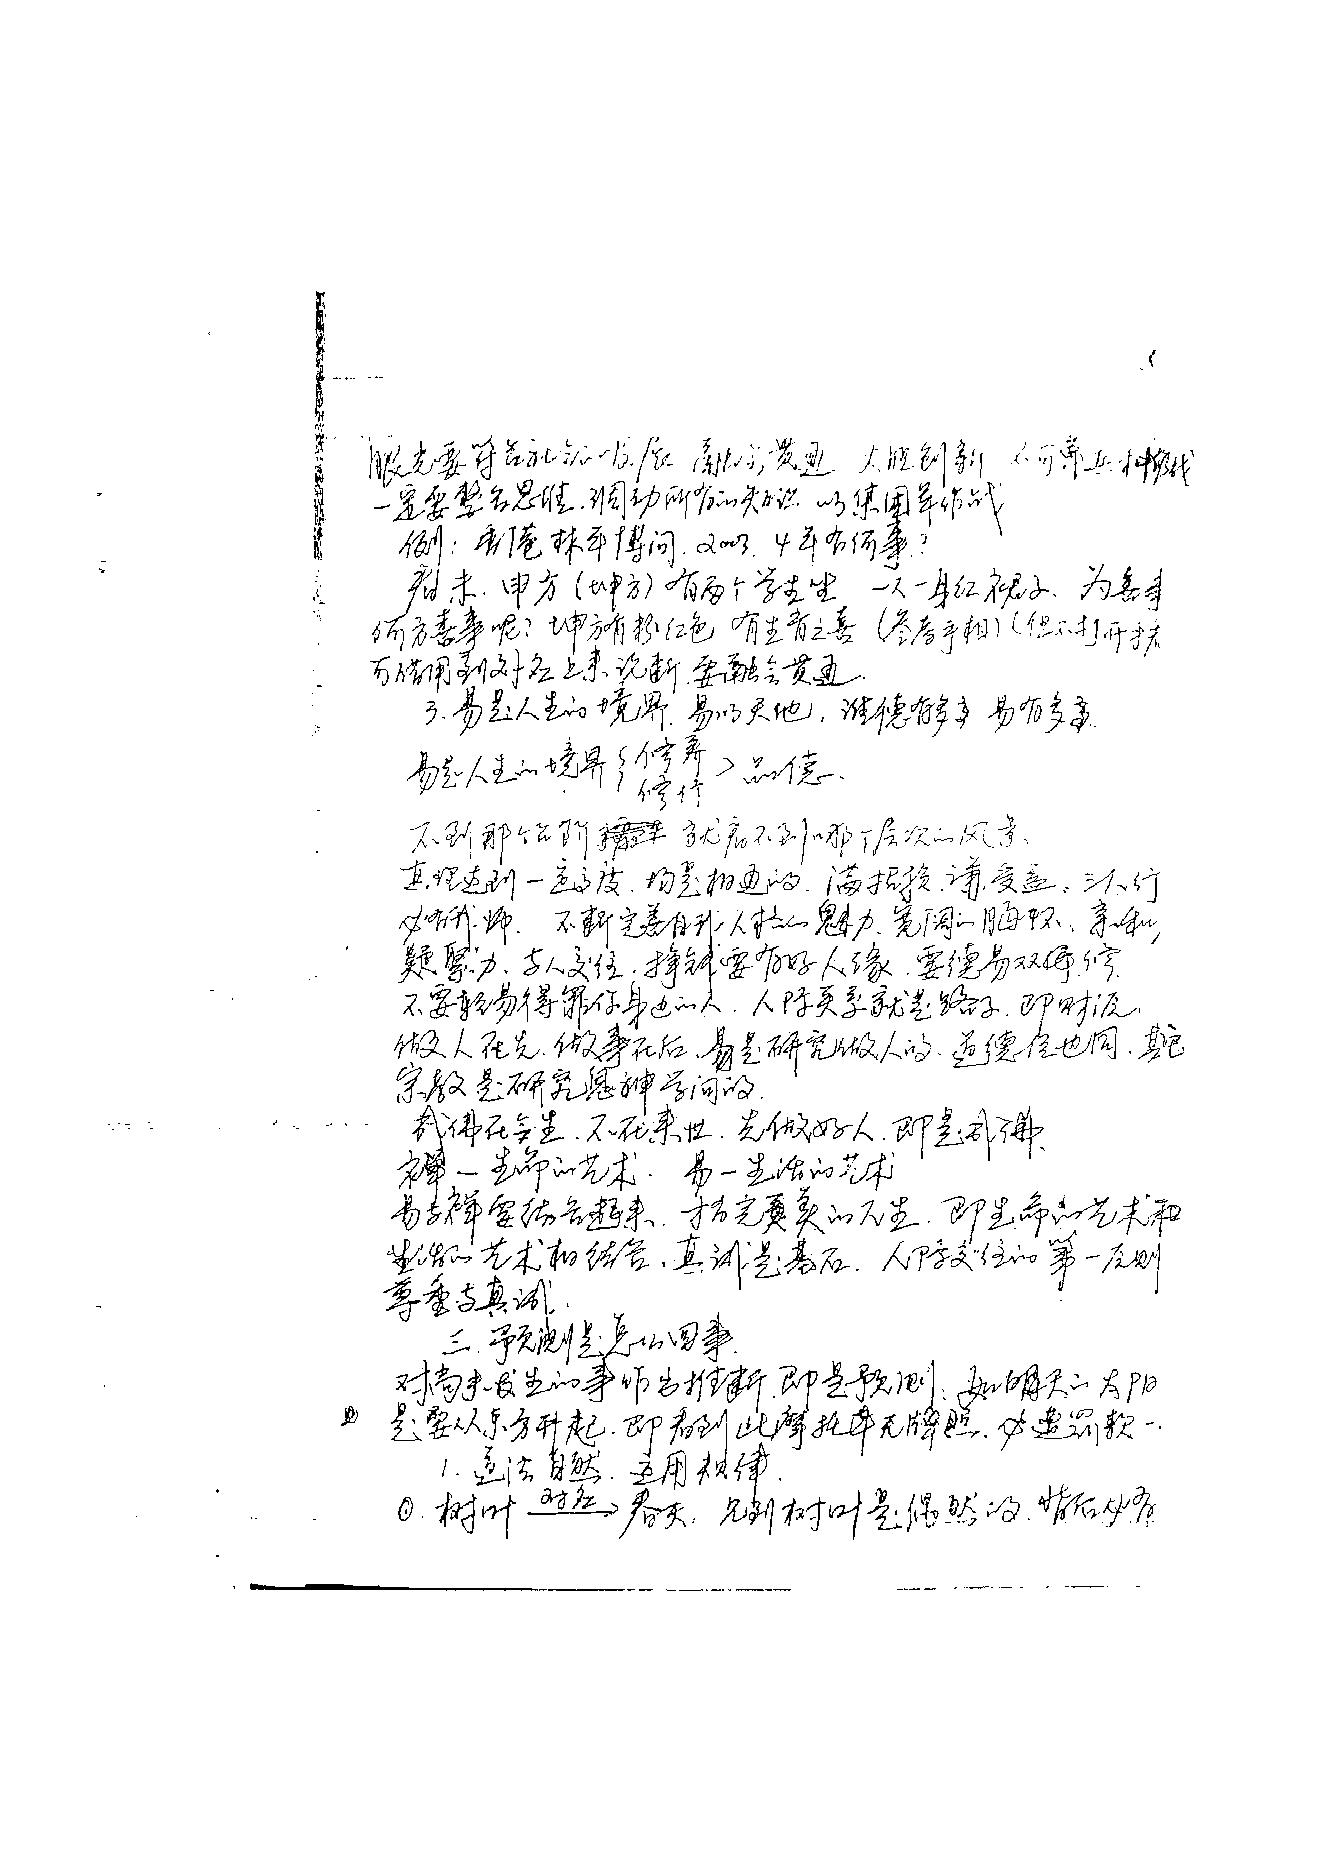 眼光要符合社会的发展 融会贯通 大胆创新 不可单兵种作战
一定要整合思维、调动所有的知识 以集团军作战
例：香港林平博问、2003、4年有何事？
看未、申方（坤方）有两个学生坐 一人一身红裙子、为喜事
何方喜事呢？坤方有粉红色 有生育之喜（参看手相）（但不打开
可借用到对应上来说断 要融会贯通.
3.易是人生的境界、易以天地，准德有多高 易有多高.
易是人生的境界{修养 修行>品德、
不到那个台阶 就看不到那个层次的风景、
真理达到一定高度、均是相通的、满招损、谦受益、三人行
必有我师、不断完善自我人格的魅力、宽阔的胸怀、亲和力
凝聚力、与人交往、挣钱要有好人缘、要德易双修
不要轻易得罪你身边的人、人际关系就是路子、即财源、
做人在先、做事在后、易是研究做人的、道德经也同、其它
宗教是研究鬼神学问的.
成佛在今生、不在来世、先做好人、即是成佛、
禅一生命的艺术、易一生活的艺术
易与禅要结合起来、才有完美的人生、即生命的艺术和
生活的艺术相结合、真诚是基石、人际交往的第一原则
尊重与真诚、
三、预测是怎么回事
对尚未发生的事作出推断、即是预测、如明天的太阳
是要从东方升起、即看到此摩托车无牌照、必遭罚款一、
1、道法自然、运用规律.
①.树叶 对应→ 春天、见到树叶是偶然的、背后必有